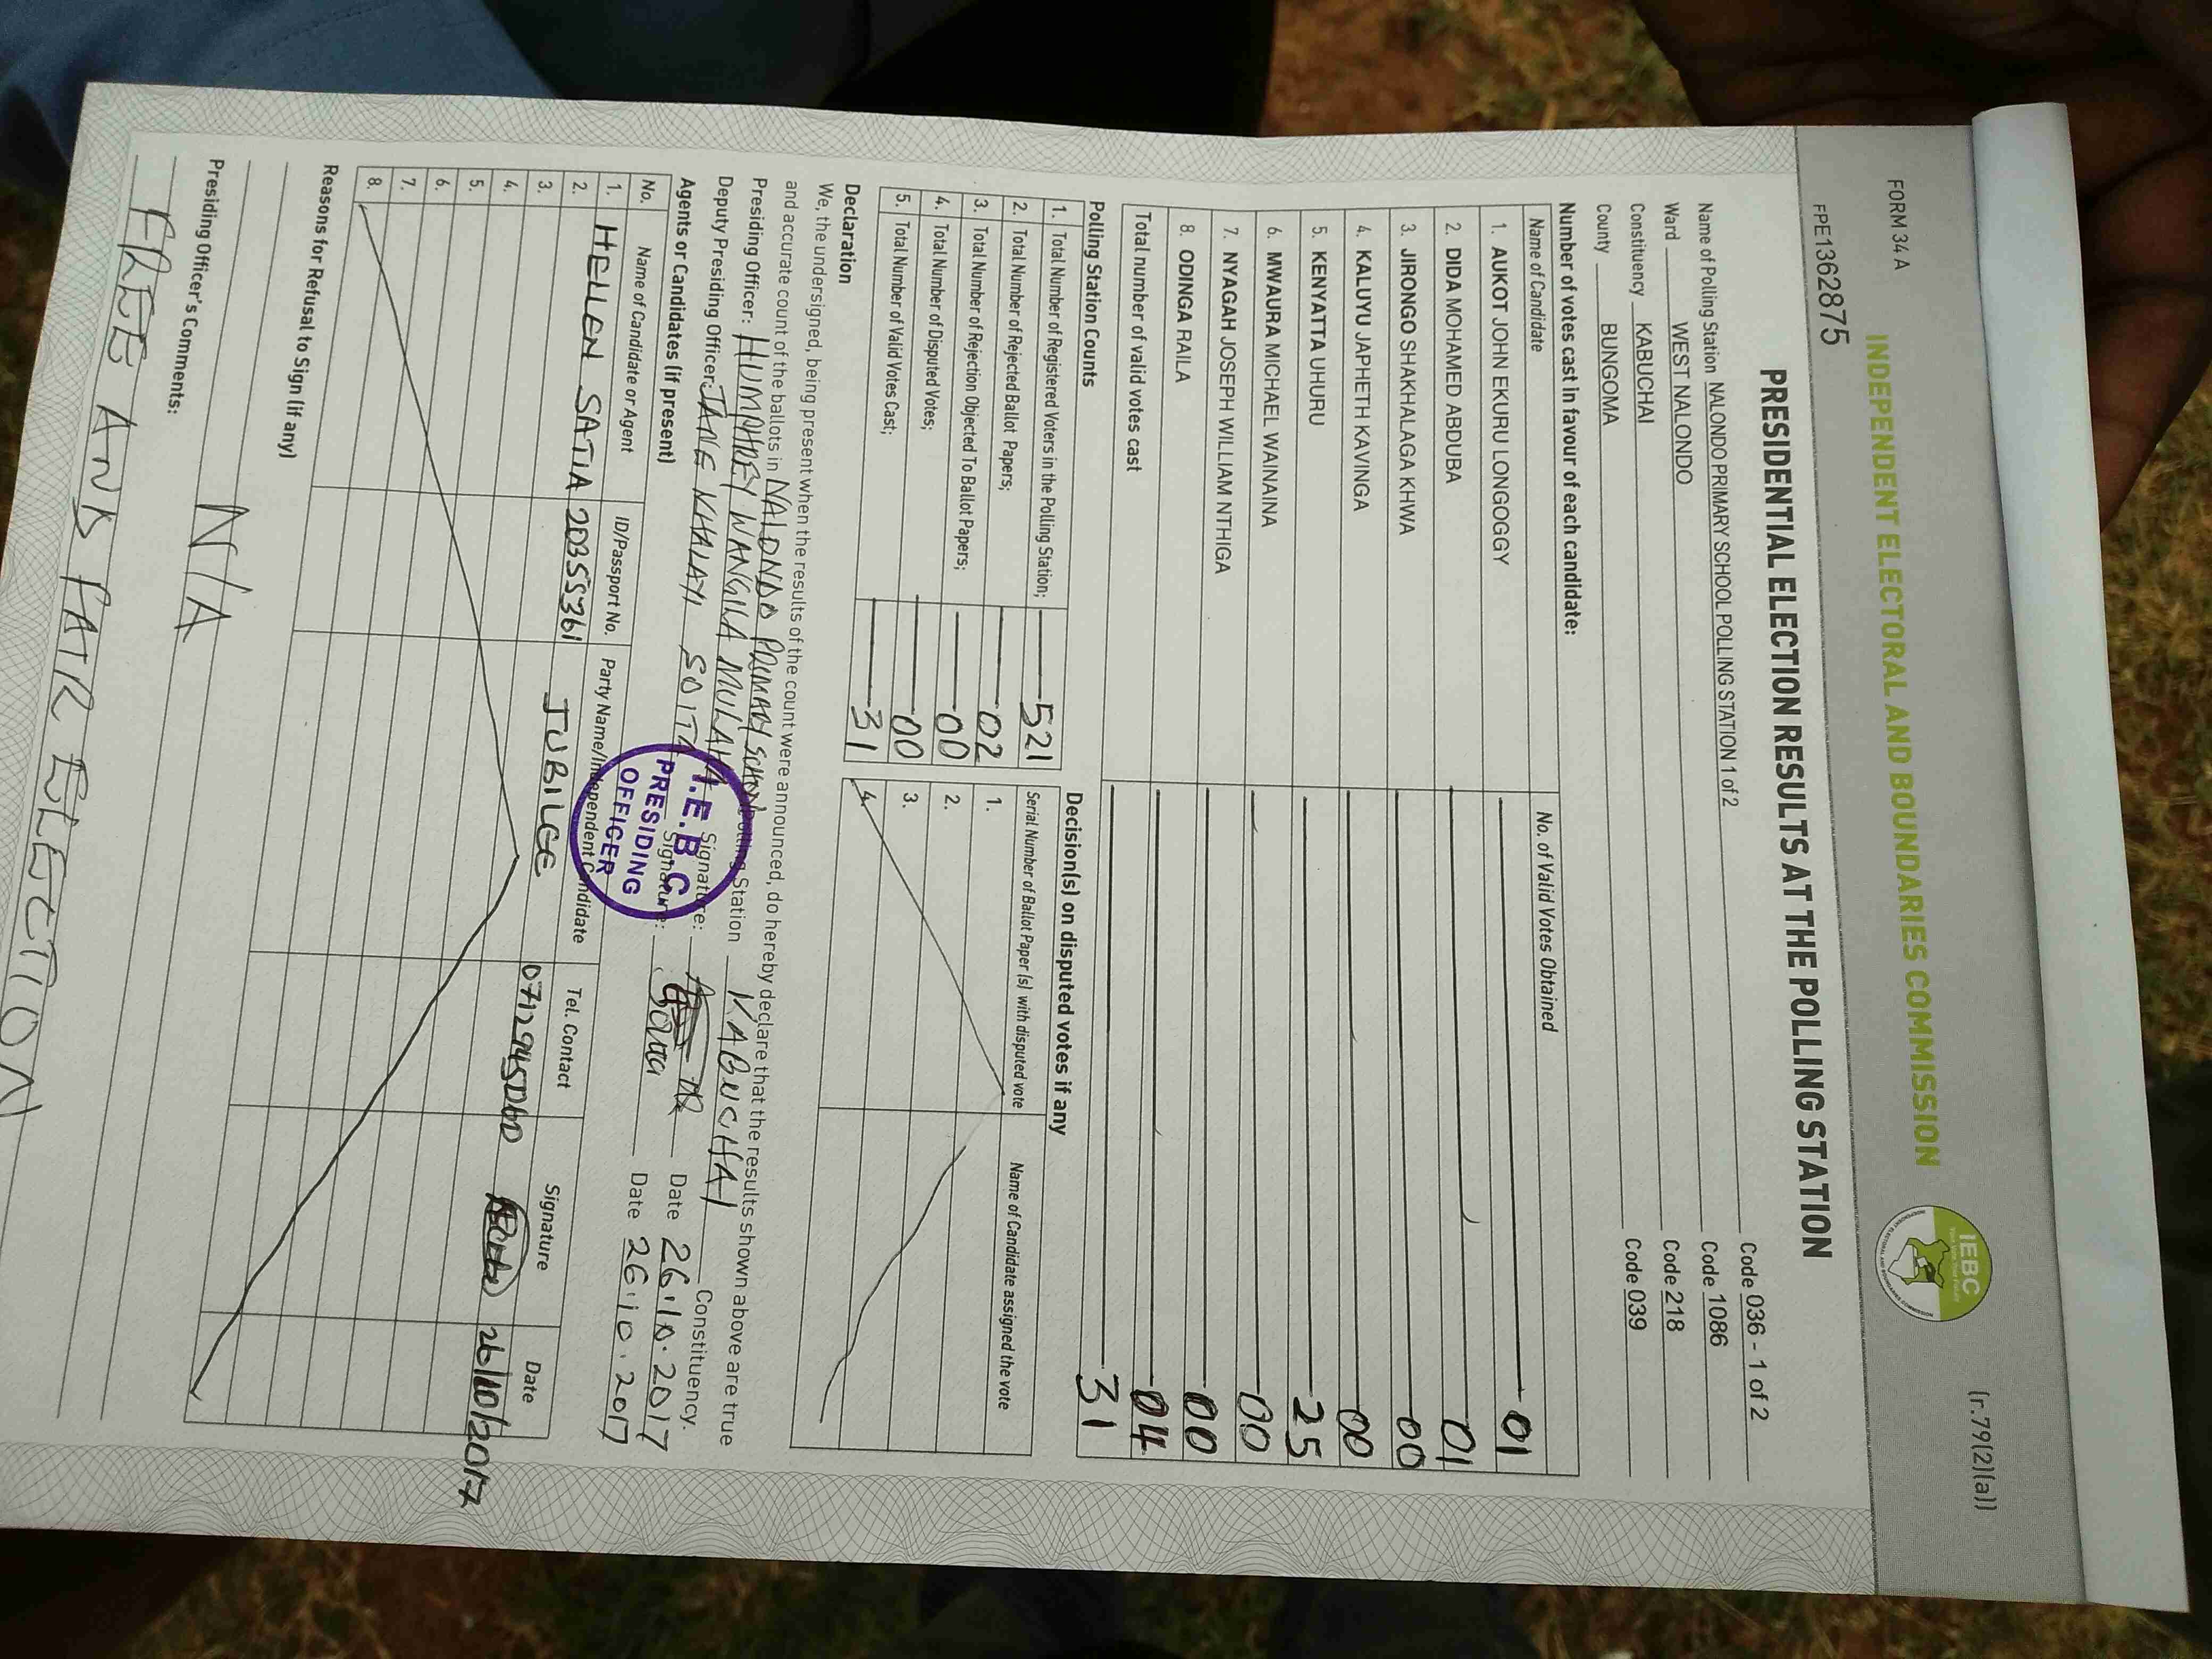 FORM 34 A
(r.79(2)(a))
INDEPENDENT ELECTORAL AND BOUNDARIES COMMISSION
IEBC
FPE1362875
PRESIDENTIAL ELECTION RESULTS AT THE POLLING STATION
Name of Polling Station NALONDO PRIMARY SCHOOL POLLING STATION 1 of 2 Code 036 - 1 of 2
Ward WEST NALONDO Code 1086
Constituency KABUCHAI Code 218
County BUNGOMA Code 039
Number of votes cast in favour of each candidate:
Name of Candidate No. of Valid Votes Obtained
1. AUKOT JOHN EKURU LONGOGGY 01
2. DIDA MOHAMED ABDUBA 01
3. JIRONGO SHAKHALAGA KHWA 00
4. KALUYU JAPHETH KAVINGA 00
5. KENYATTA UHURU 25
6. MWAURA MICHAEL WAINAINA 00
7. NYAGAH JOSEPH WILLIAM NTHIGA 00
8. ODINGA RAILA 04
Total number of valid votes cast 31
Polling Station Counts
1. Total Number of Registered Voters in the Polling Station; 521
2. Total Number of Rejected Ballot Papers; 02
3. Total Number of Rejection Objected To Ballot Papers; 00
4. Total Number of Disputed Votes; 00
5. Total Number of Valid Votes Cast; 31
Decision(s) on disputed votes if any
Serial Number of Ballot Paper (s) with disputed vote Name of Candidate assigned the vote
1.
2.
3.
4.
Declaration
We, the undersigned, being present when the results of the count were announced, do hereby declare that the results shown above are true
and accurate count of the ballots in NALONDO PRIMARY SCHOOL Polling Station KABUCHAI Constituency.
Presiding Officer: HUMPHREY WANGILA MULAMA Signature: Date 26.10.2017
Deputy Presiding Officer: JANE KHALAYI SOITA Signature: Soita Date 26.10.2017
I.E.B.C
PRESIDING
OFFICER
Agents or Candidates (if present)
No. Name of Candidate or Agent ID/Passport No. Party Name/Independent Candidate Tel. Contact Signature Date
1. HELLEN SATIA 20355361 JUBILEE 26/10/2017
2.
3.
4.
5.
6.
7.
8.
Reasons for Refusal to Sign (if any)
N/A
Presiding Officer's Comments:
FREE AND FAIR ELECTION